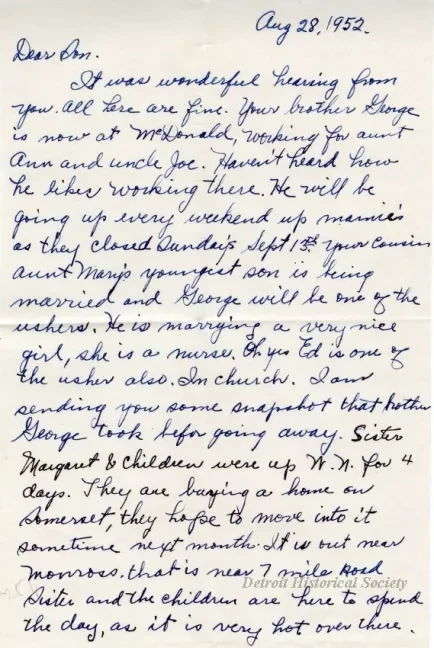 Aug 28, 1952.
Dear Son.
It was wonderful hearing from
you. All here are fine. Your brother George
is now at McDonald, working for aunt
Ann and uncle Joe. Haven't heard how
he likes working there. He will be
going up every weekend up mamie's
as they closed Sunday's Sept 13th your cousin
aunt Mary's youngest son is being
married and George will be one of the
ushers. He is marrying a very nice
girl, she is a nurse. Oh yes Ed is one of
the usher also. In church. I am
sending you some snapshot that brother
George took befor going away. Sister
Margaret & children were up W.N. for 4
days. They are buying a home on
Somerset, they hope to move into it
sometime next month. It is out near
Monross. that is near 7 mile Road
Detroit Historical Society
Sister and the children are here to spend
the day, as it is very hot over there.